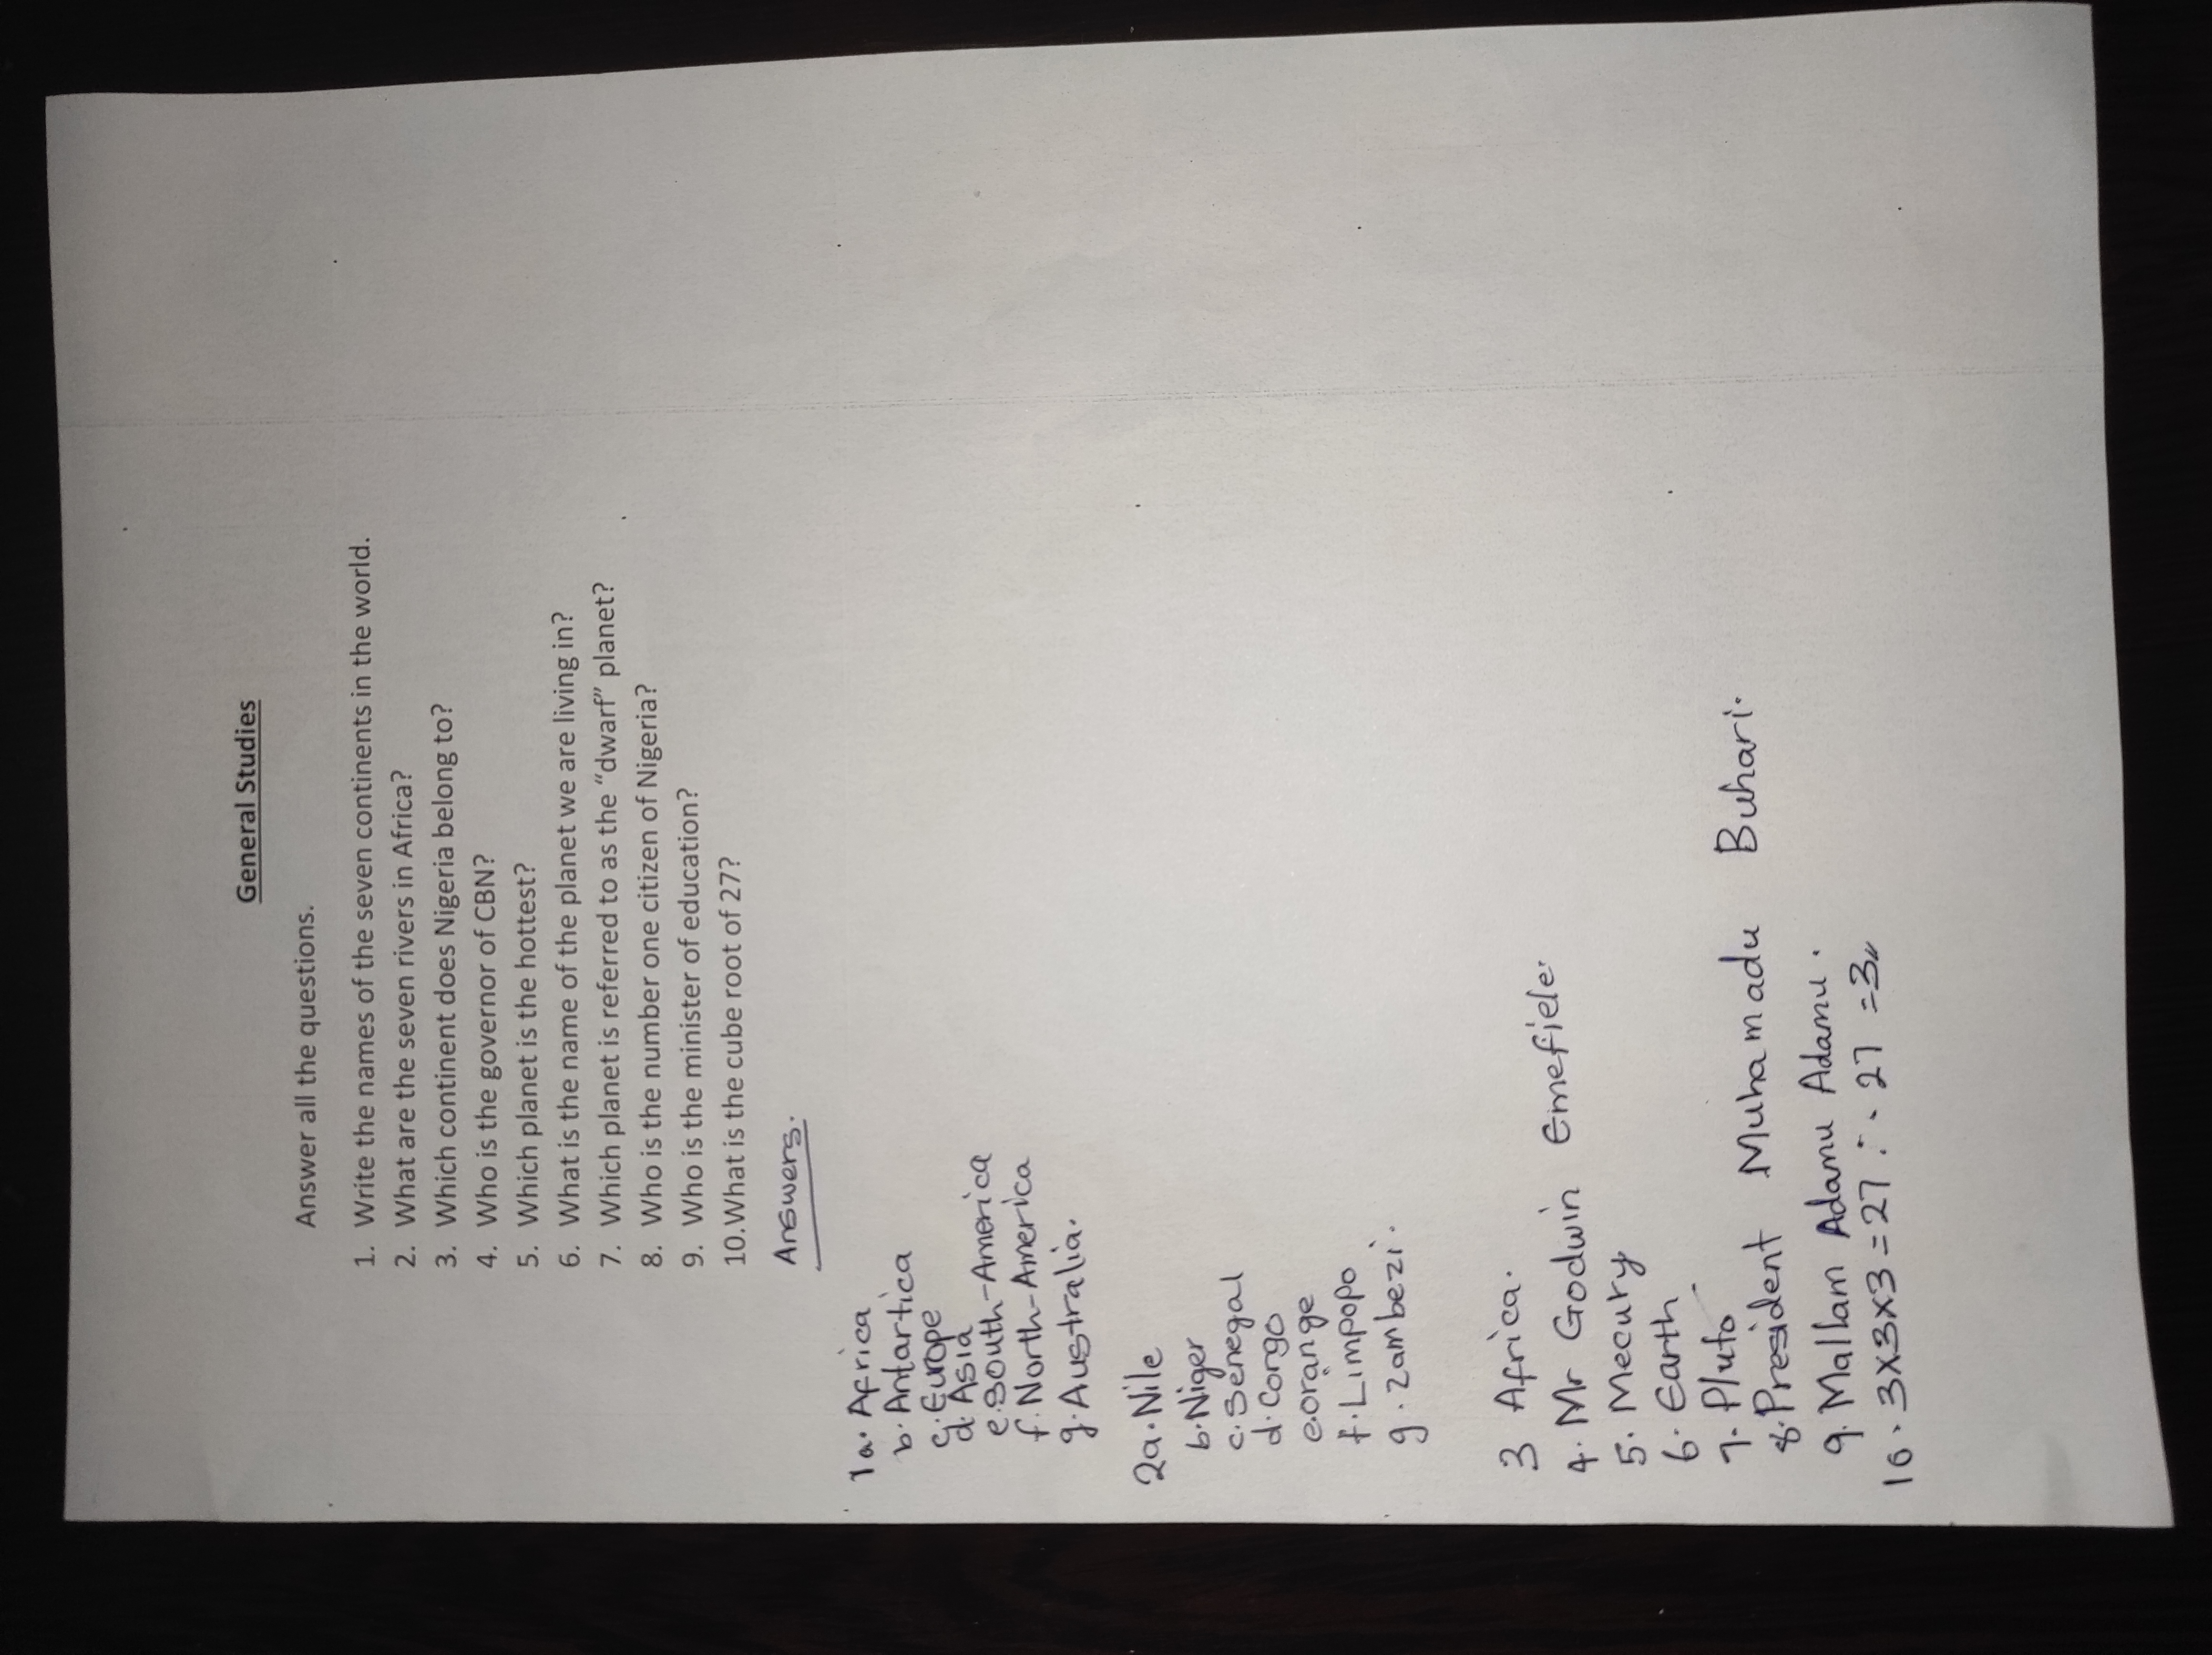 General Studies
Answer all the questions.
1. Write the names of the seven continents in the world.
2. What are the seven rivers in Africa?
3. Which continent does Nigeria belong to?
4. Who is the governor of CBN?
5. Which planet is the hottest?
6. What is the name of the planet we are living in?
7. Which planet is referred to as the “dwarf” planet?
8. Who is the number one citizen of Nigeria?
9. Who is the minister of education?
10.What is the cube root of 27?
Answers.
1a. Africa
b. Antartica
c. Europe
d. Asia
e. South-America
f. North-America
g. Australia.
2a. Nile
b. Niger
c. Senegal
d. Congo
e. orange
f. Limpopo
g. zambezi.
3 Africa.
4. Mr Godwin Emefiele.
5. Mecury
6. Earth
7. Pluto
8. President Muhamadu Buhari.
9. Mallam Adamu Adamu.
10. 3x3x3=27 ∴ 27 =3,,